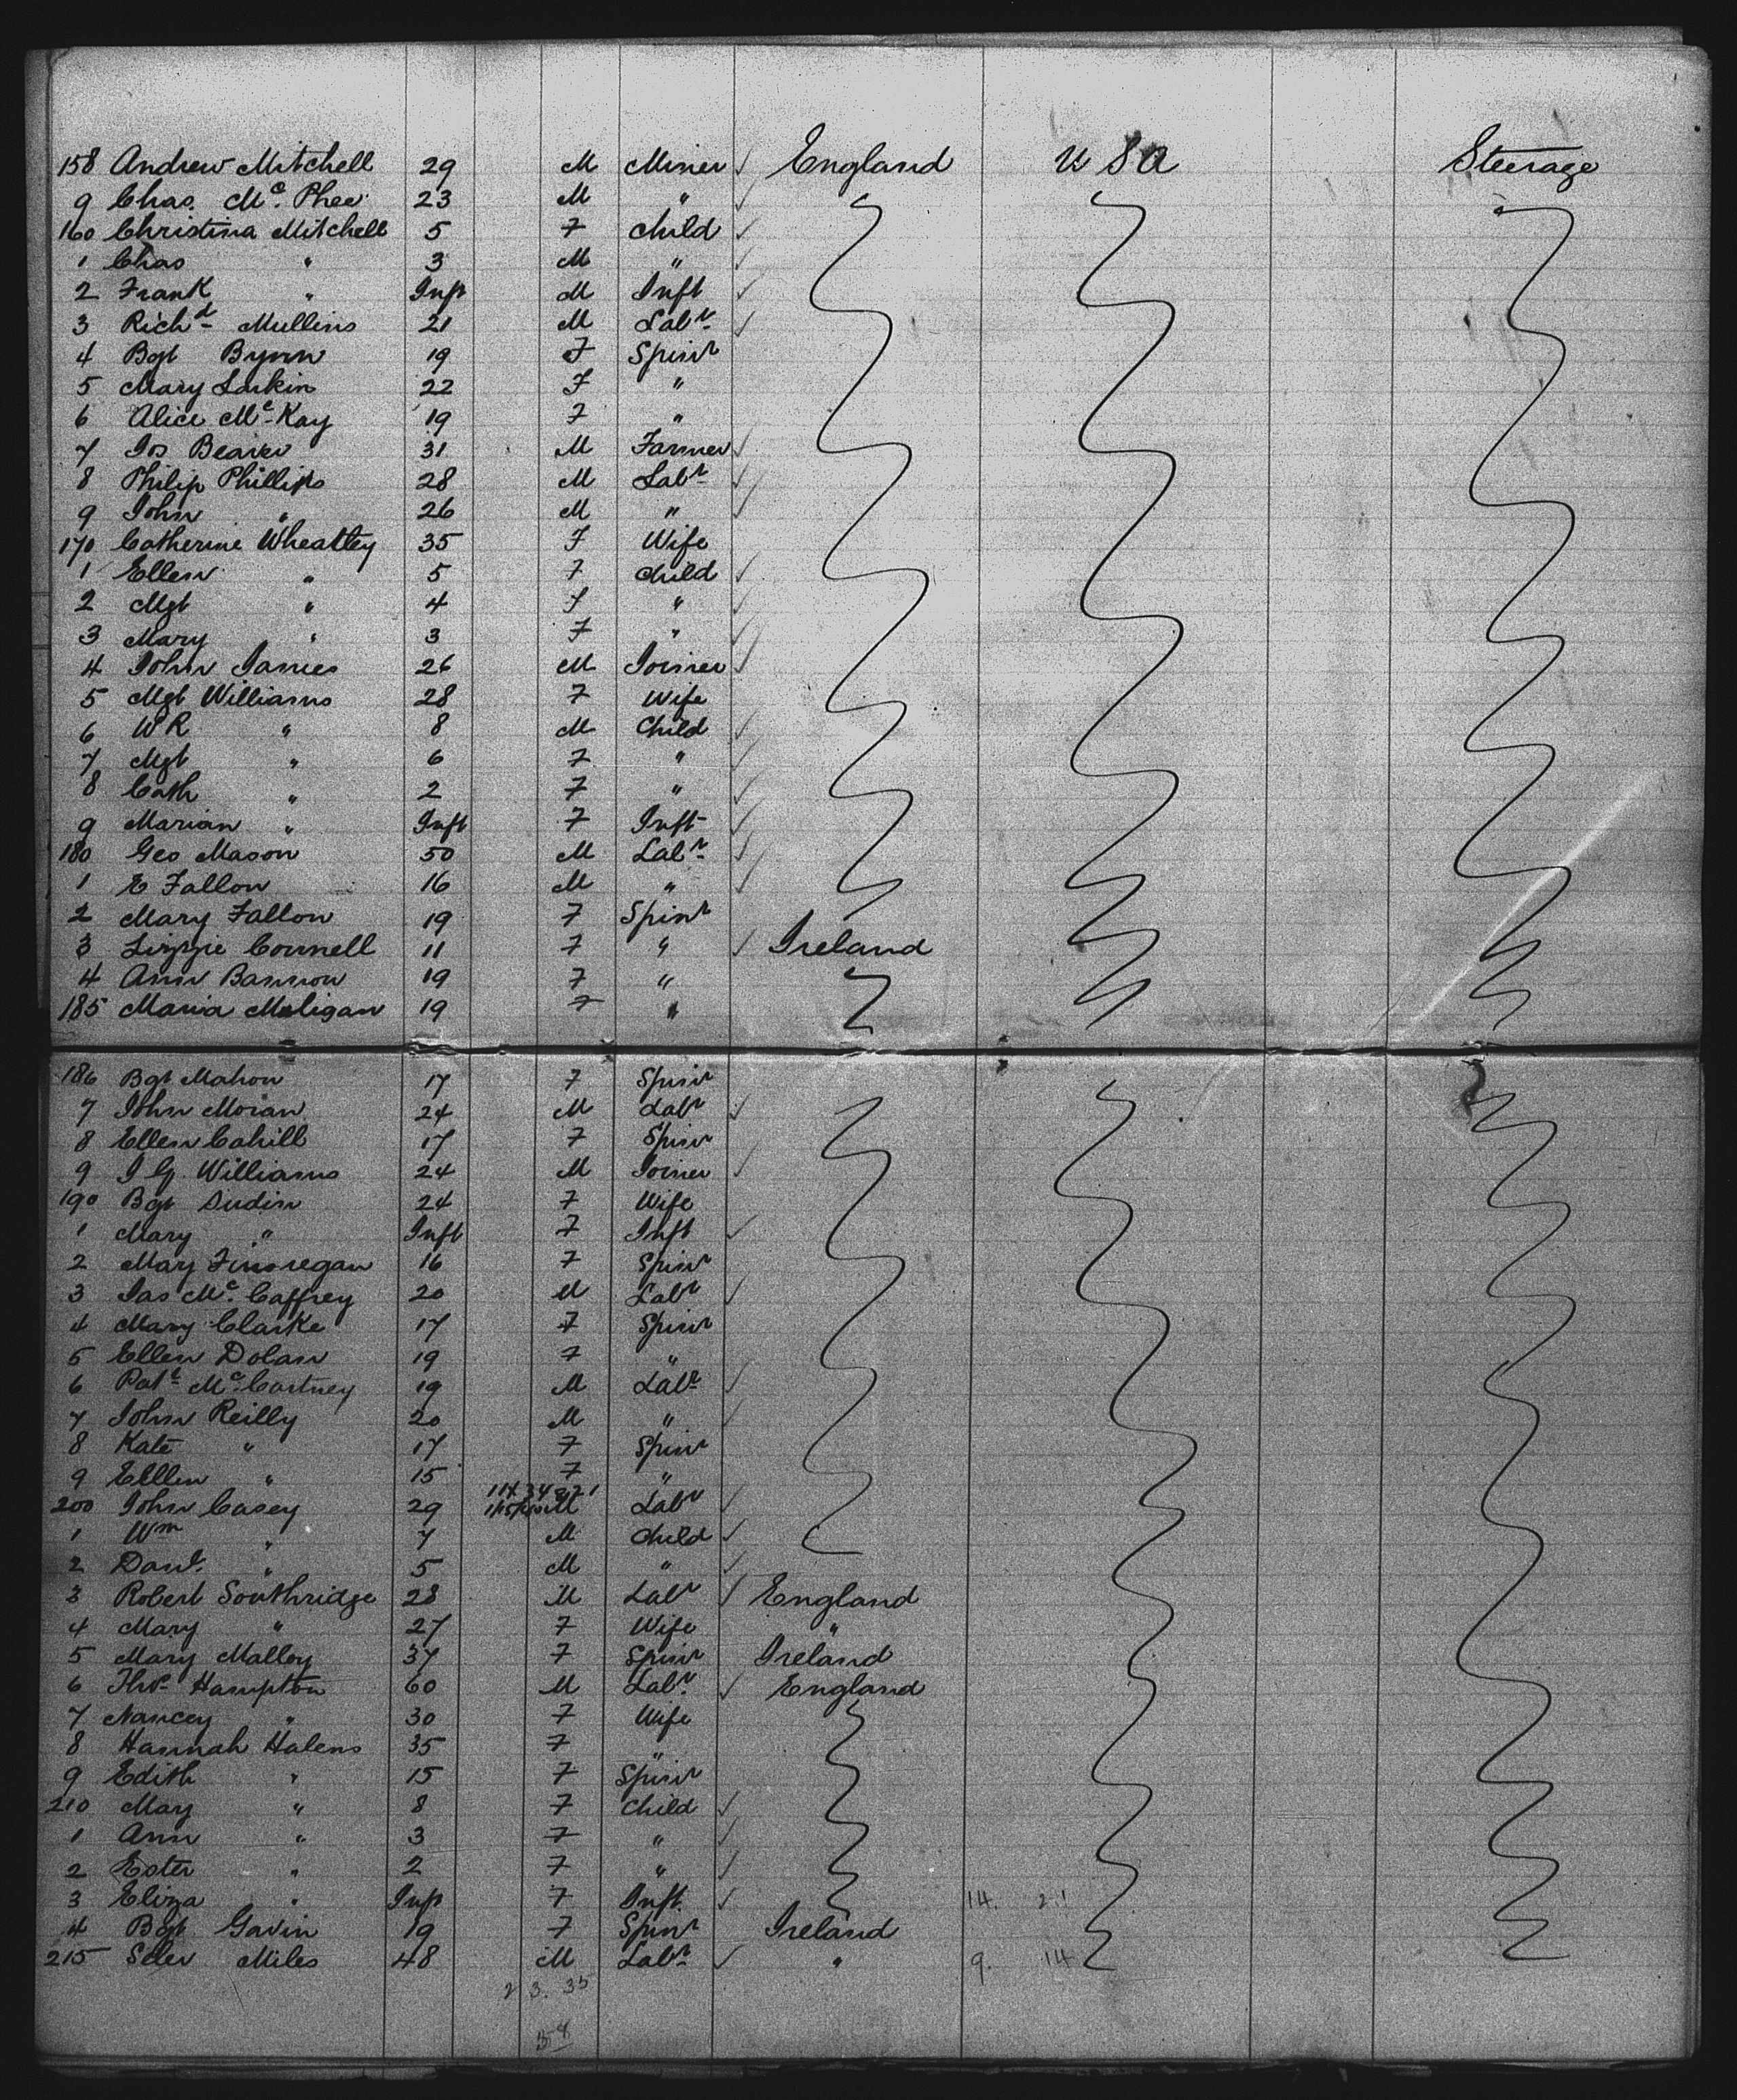 158 Andrew Mitchell 29 M Miner ✓ England U S A Steerage
9 Chas. Mc Phee 23 M " ✓
160 Christina Mitchell 5 F Child ✓
1 Chas " 3 M " ✓
2 Frank " Inft M Inft ✓
3 Richd Mullins 21 M Labr ✓
4 Bgt Byrn 19 F Spinr
5 Mary Larkin 22 F "
6 Alice McKay 19 F "
7 Jos 31 M Farmer ✓
8 Philip Phillips 28 M Labr ✓
9 John " 26 M " ✓
170 Catherine Wheatley 35 F Wife
1 Ellen " 5 F Child ✓
2 Mgt " 4 F " ✓
3 Mary " 3 F " ✓
4 John James 26 M Joiner ✓
5 Mgt Williams 28 F Wife
6 W R " 8 M Child ✓
7 Mgt " 6 F " ✓
8 Cath " 2 F " ✓
9 Marian " Inft F Inft ✓
180 Geo Mason 50 M Labr ✓
1 E Fallon 16 M " ✓
2 Mary Fallon 19 F Spinr
3 Lizzie Connell 11 F " ✓ Ireland
4 Ann Bannon 19 F "
185 Maria Muligan 19 F "
186 Bgt Mahon 17 F Spinr
7 John Moran 24 M Labr ✓
8 Ellen Cahill 17 F Spinr
9 J G Williams 24 M Joiner ✓
190 Bgt Dudin 24 F Wife
1 Mary " Inft F Inft ✓
2 Mary Finnegan 16 F Spinr
3 Jas Mc Caffrey 20 M Labr ✓
4 Mary Clarke 17 F Spinr
5 Ellen Dolan 19 F "
6 Patk Mc Cartney 19 M Labr ✓
7 John Reilly 20 M " ✓
8 Kate " 17 F Spinr
9 Elllen " 15 F "
200 John Casey 29 M Labr ✓
1 Wm " 7 M Child ✓
2 Danl. " 5 M " ✓
3 Robert Southridge 28 M Labr ✓ England
4 Mary " 27 F Wife "
5 Mary Malley 37 F Spinr Ireland
6 Thos Hampton 60 M Labr ✓ England
7 Nancey " 30 F Wife
8 Hannah Halens 35 F "
9 Edith " 15 F Spinr
210 May " 8 F Child ✓
1 Ann " 3 F " ✓
2 Ester " 2 F " ✓
3 Eliza " Inft F Inft. ✓ 14. 21
4 Bgt Gavin 19 F Spinr Ireland
215 Miles 48 M Labr ✓ " 9. 14
2 3. 35